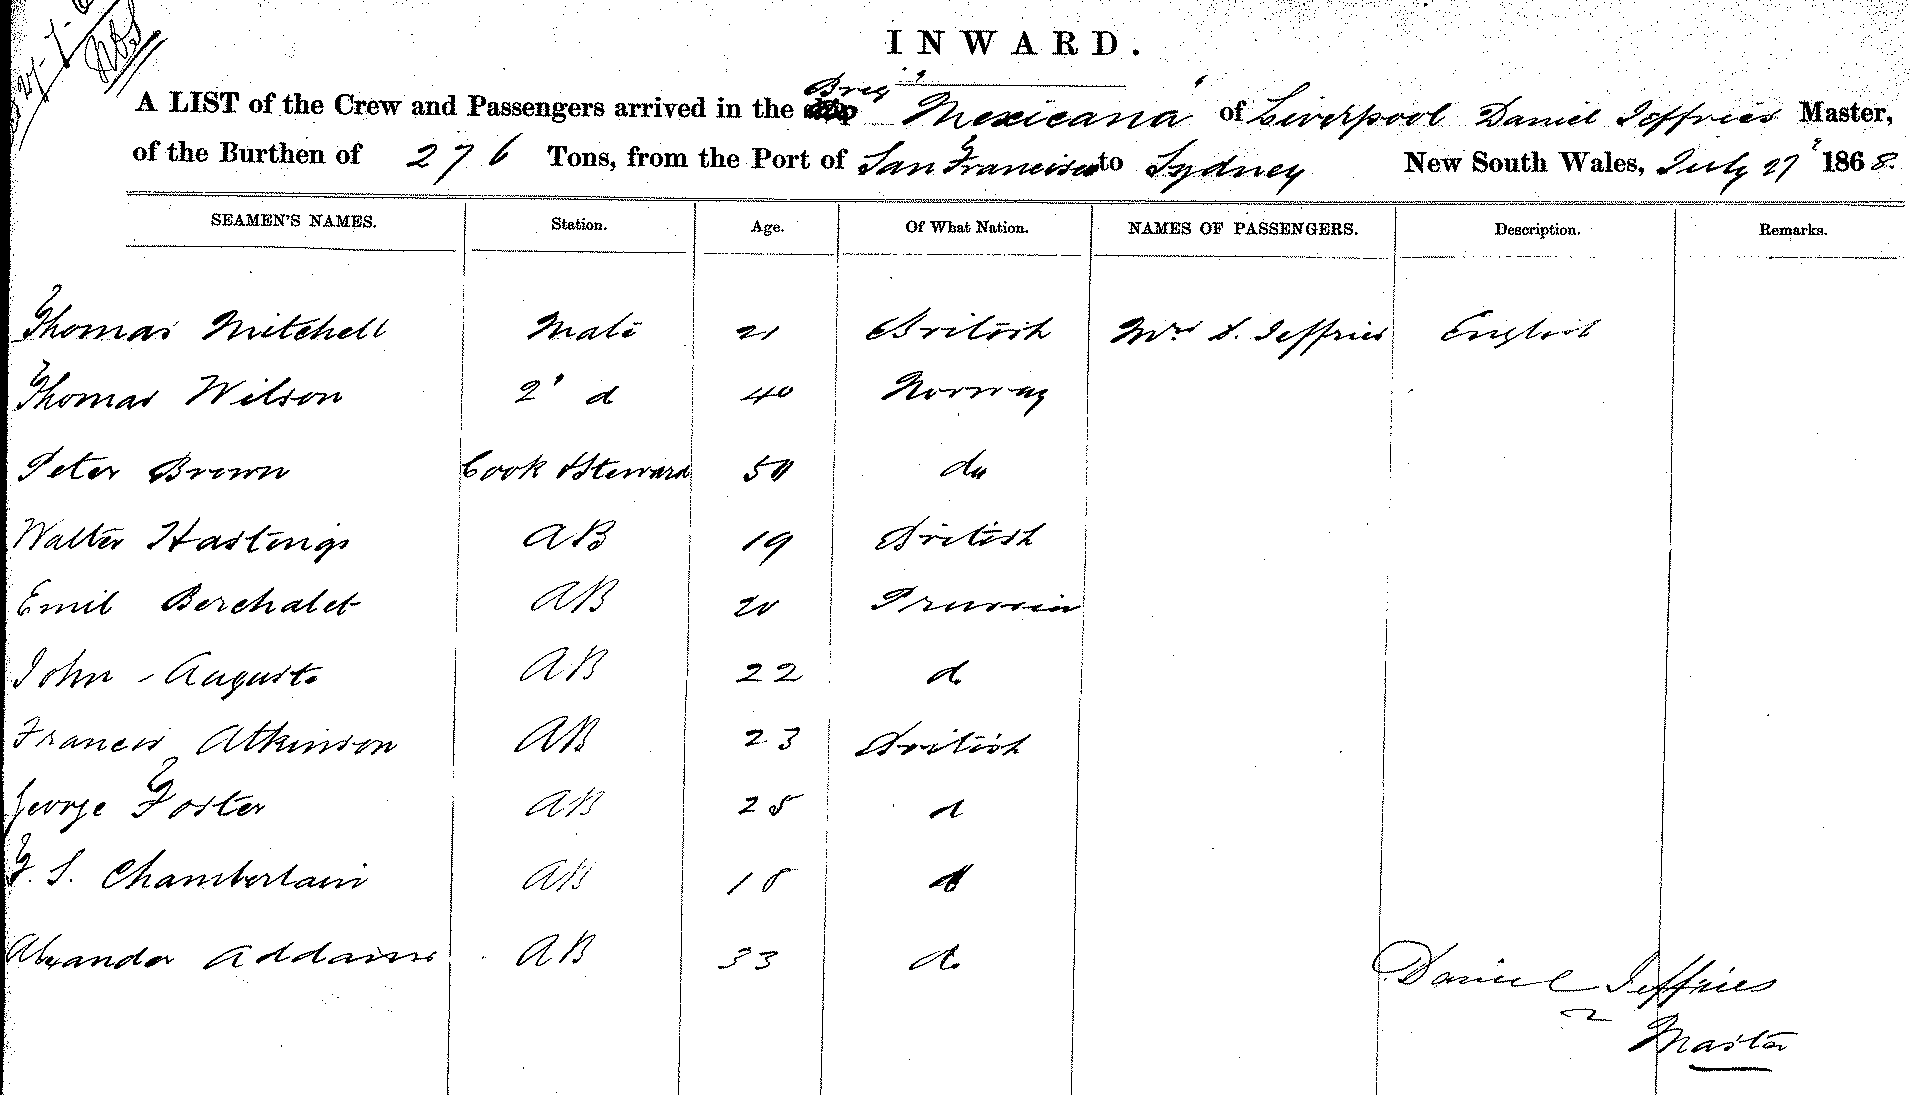 INWARD.
A LIST of the Crew and Passengers arrived in the Brig "Mexicana" of Liverpool Daniel Jeffries Master,
of the Burthen of 276 Tons, from the Port of San Francisco to Sydney New South Wales, July 27 1868.
SEAMEN'S NAMES. Station. Age. Of What Nation. NAMES OF PASSENGERS. Description. Remarks.
Thomas Mitchell Mate 21 British Mrs D. Jeffries English
Thomas Wilson 2 d 40 Norway
Peter Brown Cook & Steward 50 do
Walter Hastings AB 19 British
Emil Berchalet AB 20 Prussia
John August AB 22 d
Francis Atkinson AB 23 British
George Foster AB 25 d
F. S. Chamberlain AB 18 d
Alxander Addams AB 33 d
Daniel Jeffries
Master